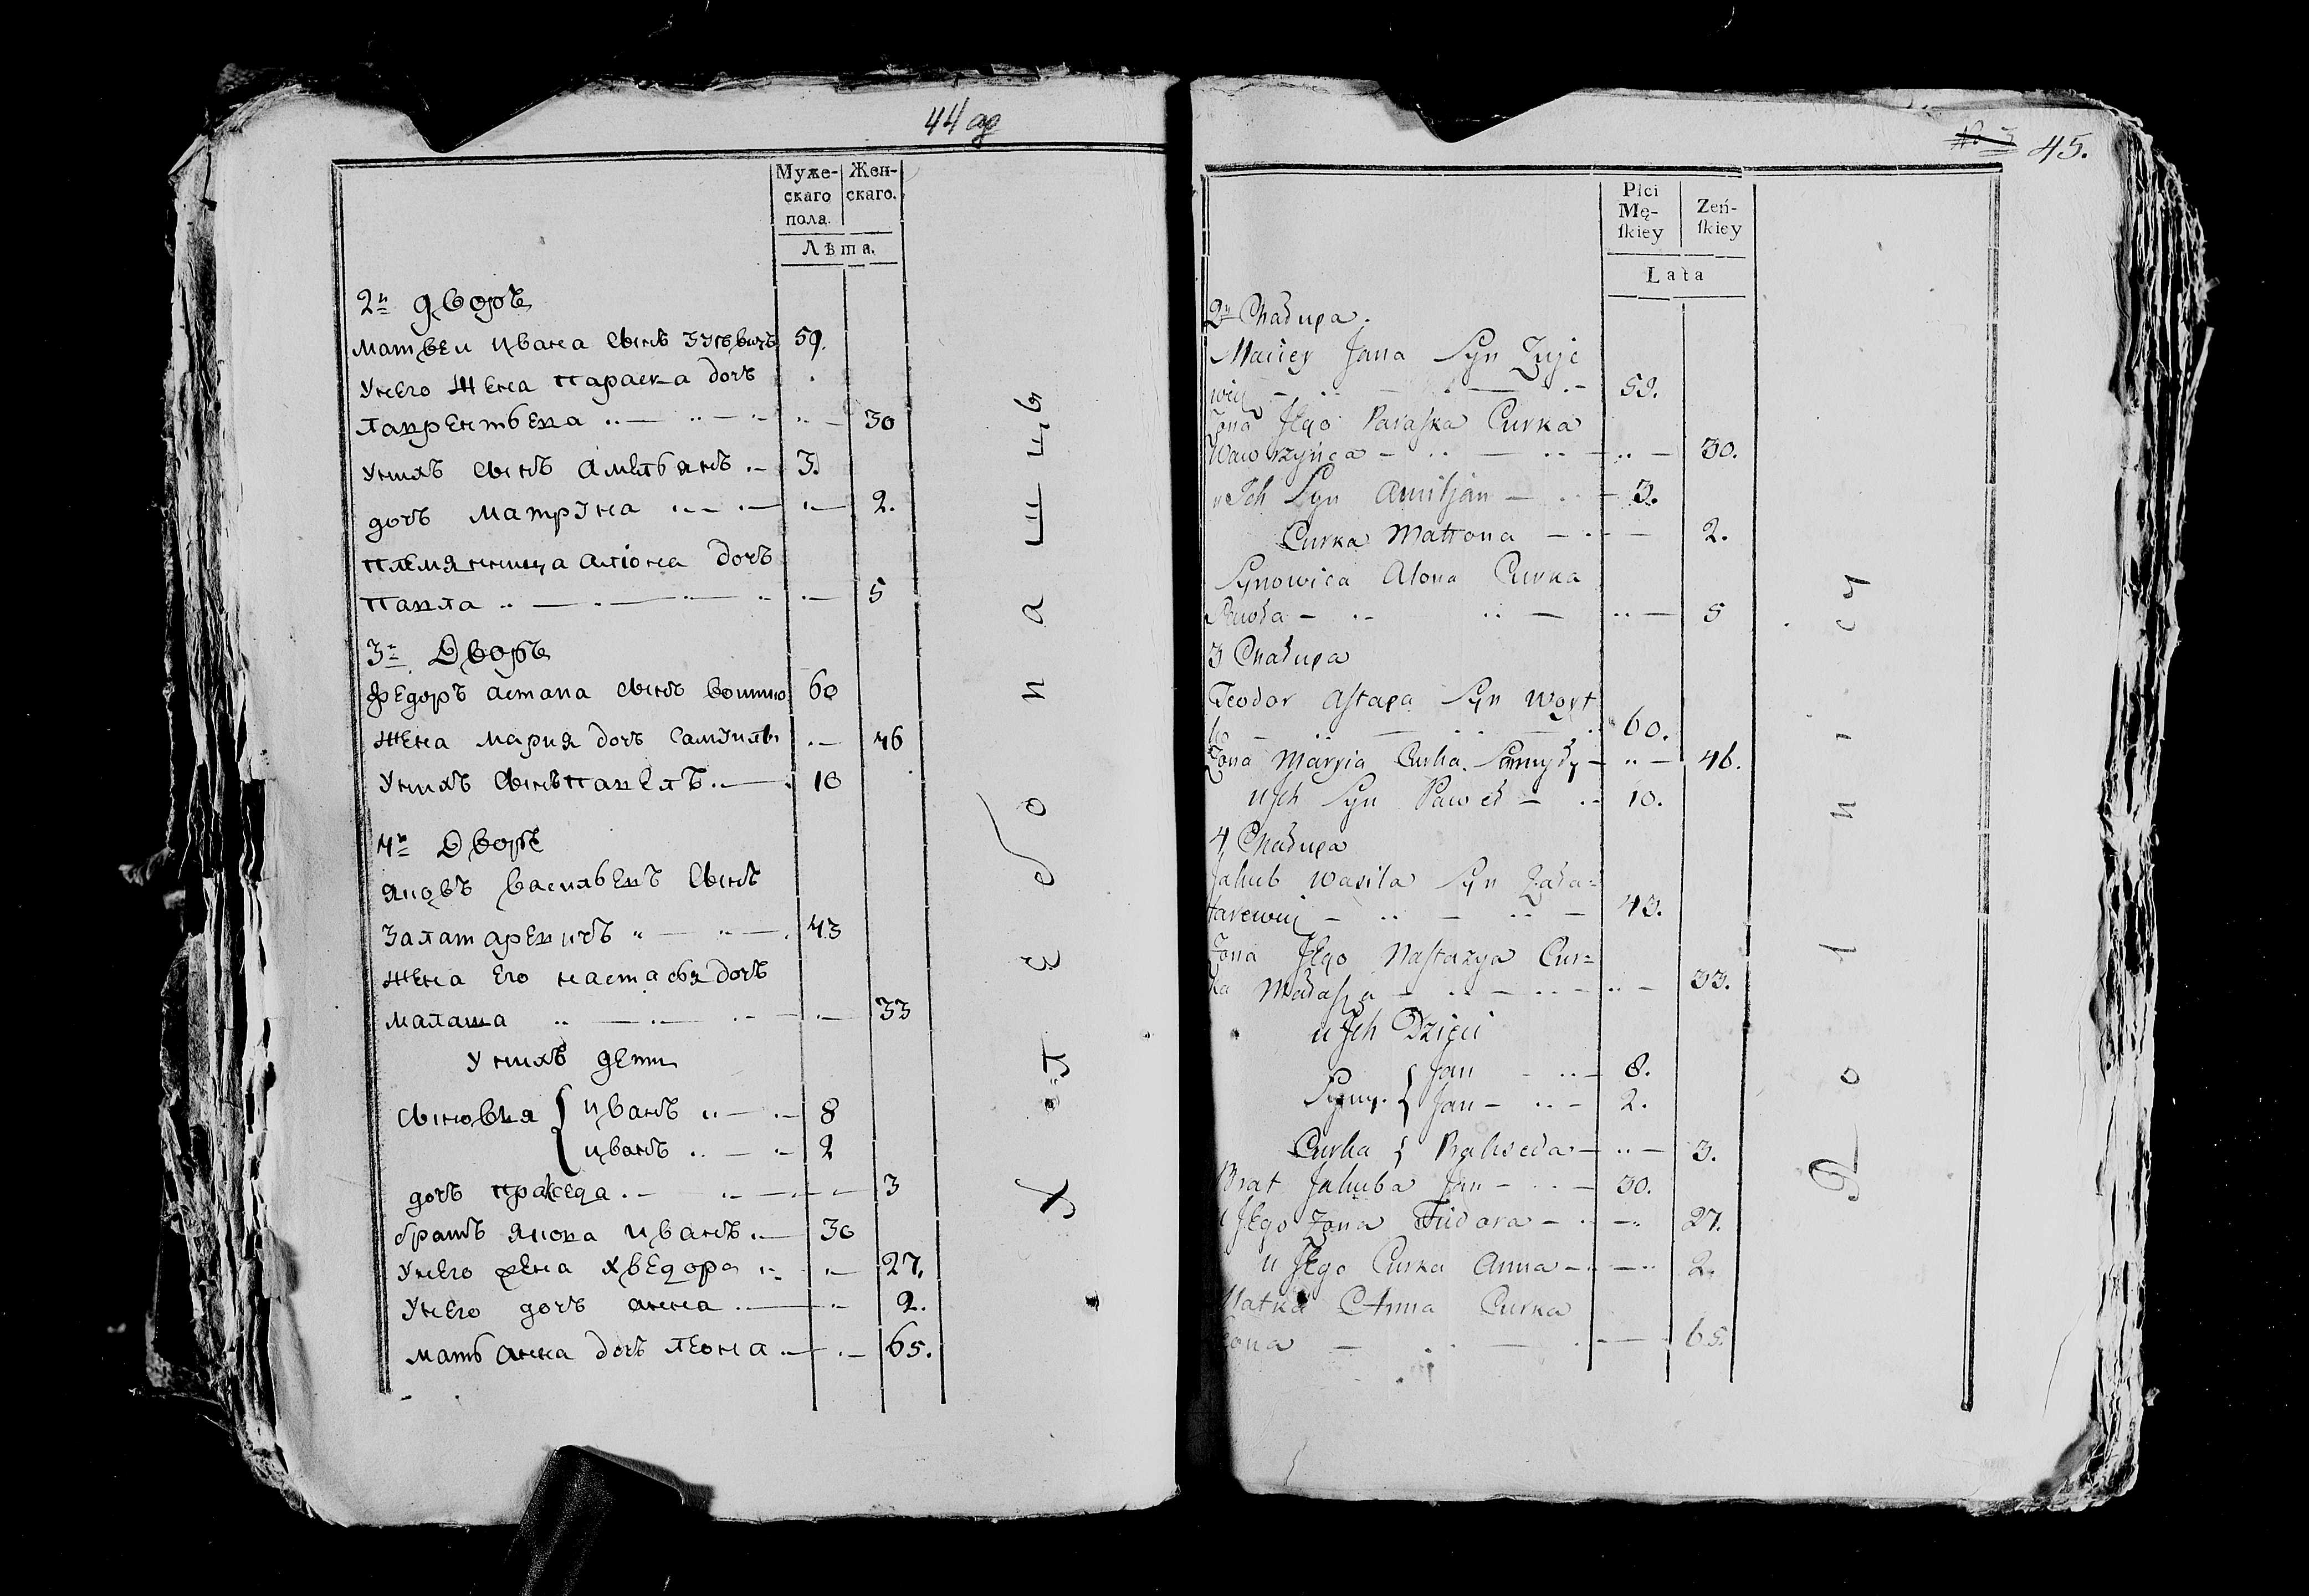 44 об
Муже-
скаго
пола.
Жен-
скаго.
Лѣта.
2й дворъ
Матвеи ивана сынъ Зуевичъ 59.
Унего жена параска дочъ
лаврентьева 30
Унихъ сынъ амельянъ 3.
дочъ матруна 2.
племянница алiона дочъ
павла 5
3й Дворъ
федоръ астапа сынъ воитко 60
жена мария дочъ самуилы 46
Унихъ сынъ павелъ 10
4й Дворъ
яковъ васильевъ сынъ
Залатаревичъ 43
жена его настасья дочъ
малаша 33
Унихъ дети
сыновья { иванъ 8
иванъ 2
дочъ пракседа 3
братъ якова иванъ 30
Унего жена хведора 27.
Унего дочъ анна 2.
мать анна дочъ леона 65.
Х л е б о п а ш ц ы
45.
Płci
Mę-
ſkiey
Żeń-
ſkiey
Lata
2y Chałupa.
Maciey Jana Syn Zuje
wicz 59.
Żona Jego Paraſka Curka
Wawrzyńca 30.
u Ich Syn Amiljan 3.
Curka Matrona 2.
Synowica Alona Curka
Pawła 5
3 Chałupa
Teodor Aſtapa Syn Woyt
ko 60.
Żona Maryia Curka Samuyły 46.
u Ich Syn Paweł 10.
4 Chałupa
Jakub Wasila Syn Zała=
tarewicz 43.
Żona Jego Naſtazya Cur=
ka Małaſza 33.
u Ich Dzieci
Syny. { Jan 8.
Jan 2.
Curka { Prakseda 3.
Brat Jakuba Jan 30.
u Jego Żona Fiedora 27.
u Jego Curka Anna 2.
Matka Anna Curka
Leona 65.
R o l n i c y